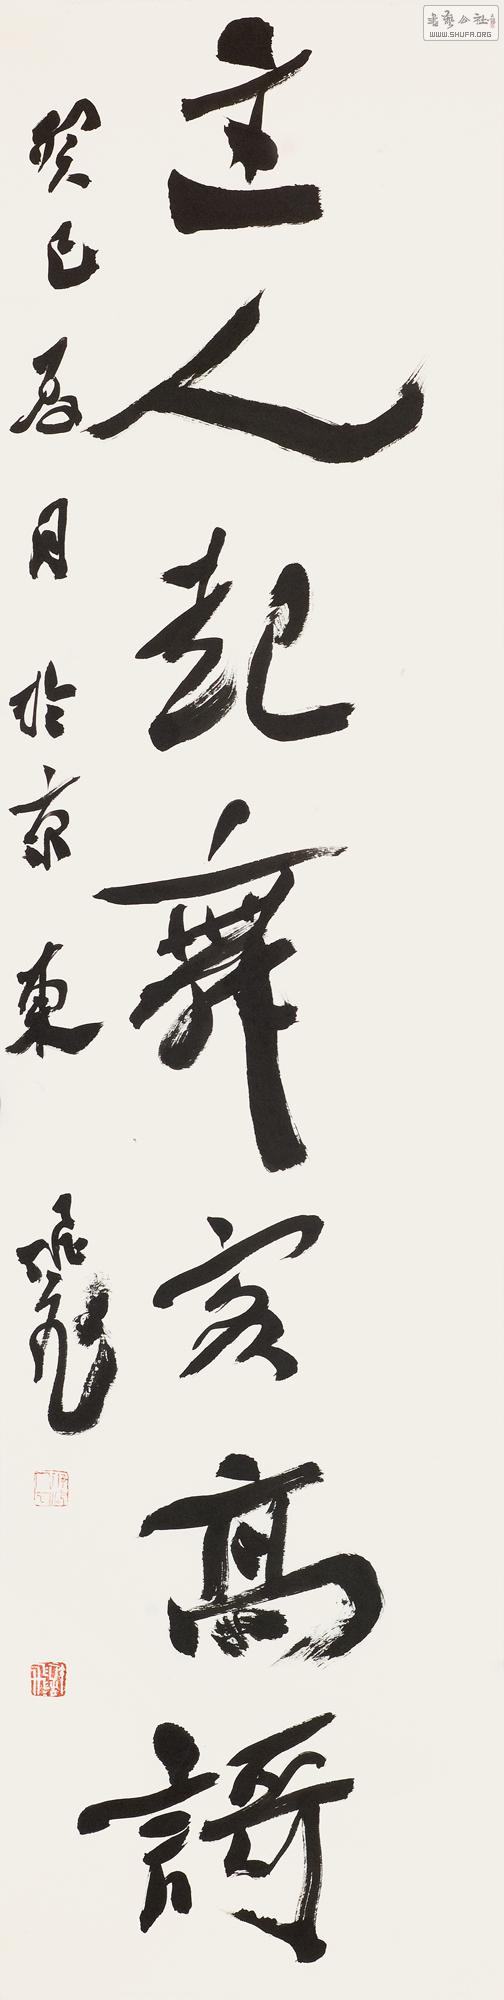 書藝公社
WWW.SHUFA.ORG
主人起舞客高謌
癸巳夏月於京東